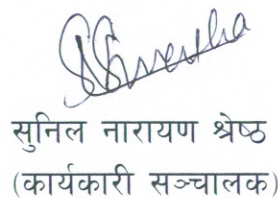 सुनिल नारायण श्रेष्ठ
(कार्यकारी सञ्चालक)